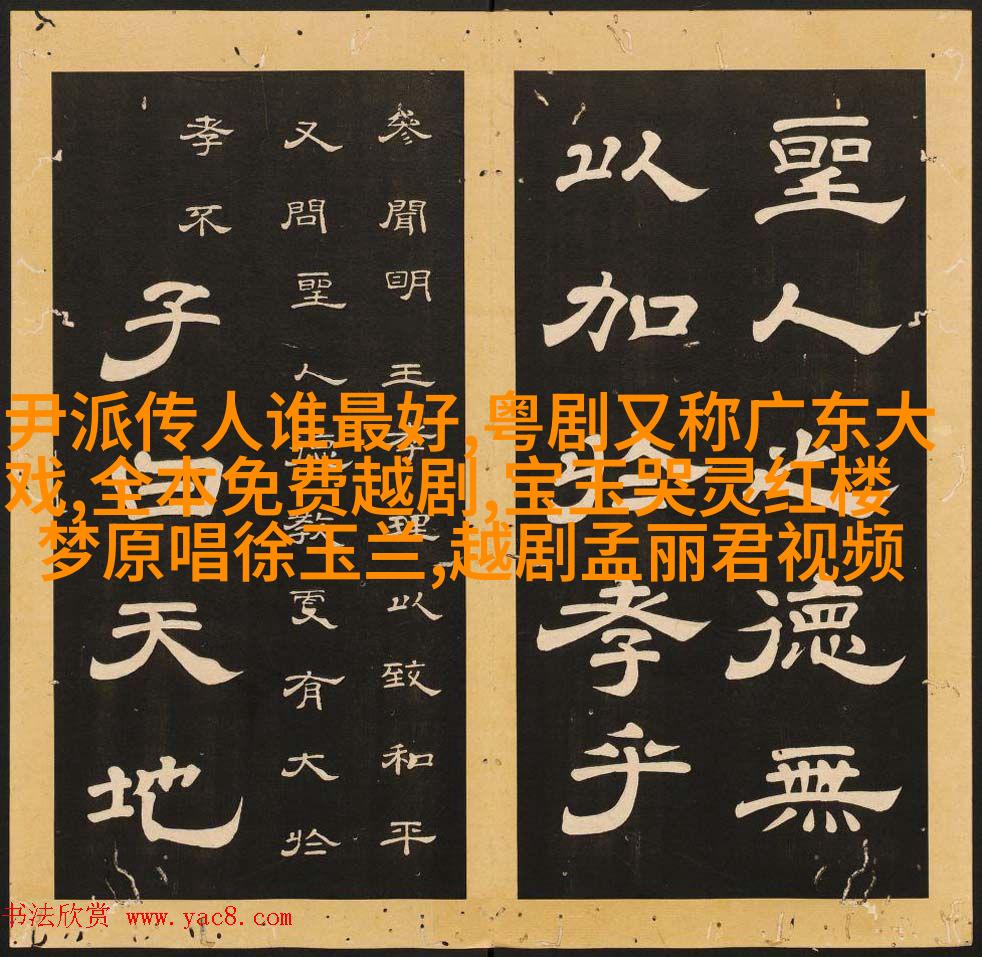 聖人之德無
以加於孝乎
參聞明王孝理以致和平
又問聖人德教更有大於
孝不
子曰天地
尹派传人谁最好,粤剧又称广东大
戏,全本免费越剧,宝玉哭灵红楼
梦原唱徐玉兰,越剧孟丽君视频
书法欣赏 www.yac8.com